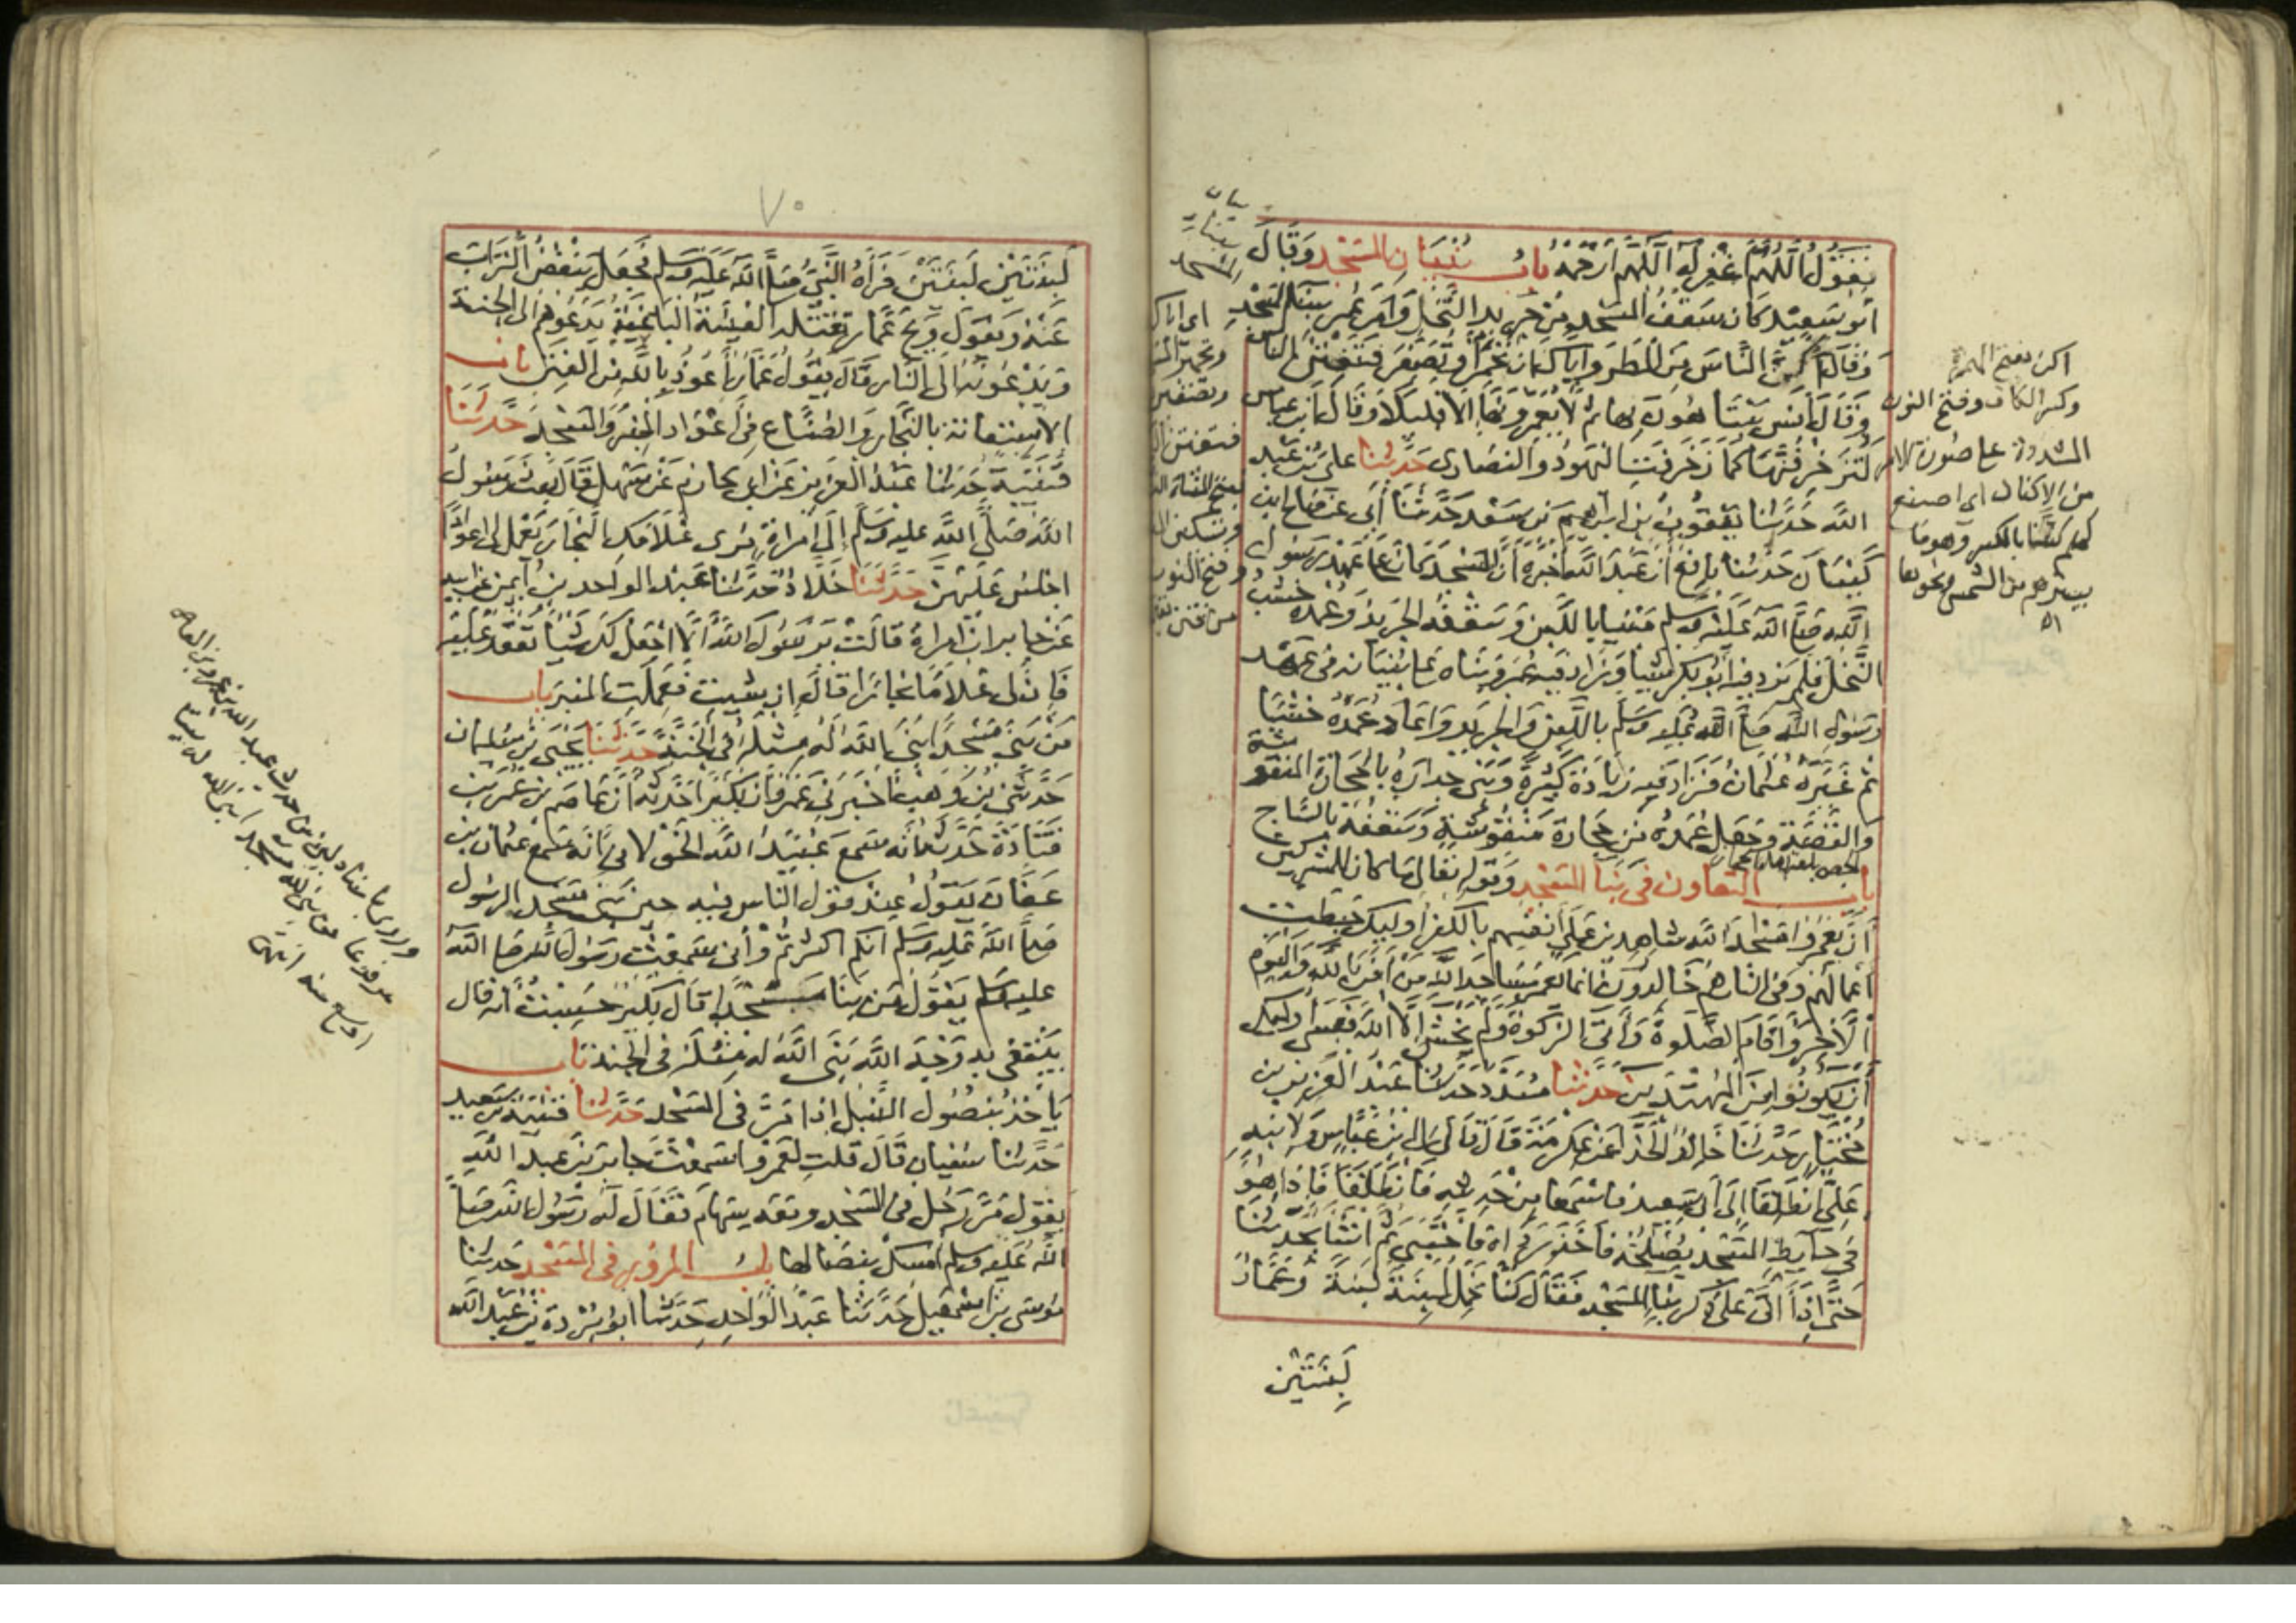 يَقُولُ اللَّهُمَّ اغْفِرْ لَهُ اللَّهُمَّ ارْحَمْهُ باب بُنْيَانِ المَسْجِدِ وَقَالَ
أَبُو سَعِيْدٍ كَانَ سَقْفُ المَسْجِدِ مِنْ جَرِيدِ النَّخْلِ وَأَمَرَ عُمَرُ ببنَاءِ المسْجِدِ
وَقَالَ أَكِنَّ النَّاسَ مِنَ المَطَرِ وَاِيَّاكَ اَنْ تُحَمِّرَ أَوْ تُصَفِّرَ فَتَفْتِنَ النَّاسَ
وَقَالَ أَنَس يَتَبَاهَوْنَ بِهَا ثُمَّ لَا يَعْمُرُونَهَا إِلَّا قَلِيلًا وَقَالَ ابن عباس
لَتُزَخْرِفُنَّهَا كَمَا زَخْرَفَتِ اليَهُودُ وَالنَّصَارى حَدَّثَنَا علي بْنُ عَبْدِ
اللَّه حَدَّثَنَا يَعْقُوبُ بن ابراهيم بْنِ سَعْد حَدَّثَنَا أَبِي عَن صَالح ابن
كَيْسَانَ حَدَّثَنَا نَافِعٌ أَنَّ عَبْدَ اللَّه أَخْبَرَهُ أَنَّ المَسْجِدَ كَانَ عَلَى عَهْدِ رَسُولِ
اللَّهِ صَلَّى اللَّه عَلَيْهِ وَسَلم مَبْنِيًّا بِاللَّبِنِ وَسَقْفُهُ الجَرِيدُ وَعُمُدُهُ خَشَبُ
النَّخْلِ فَلَمْ يَزِد فِيهِ أَبُو بَكْرٍ شَيْئًا وَزَادَ فِيهِ عُمَرُ وَبَنَاهُ عَلَى بُنْيَانِه فِي عَهْد
رَسُولِ اللَّه صَلَّى اللَّه عَلَيْهِ وَسَلَّمَ بِاللَّبِنِ وَالجَرِيدِ وَأَعَادَ عُمُدَهُ خَشَبًا
ثُمَّ غَيَّرَهُ عُثْمَانُ فَزَادَ فِيه زِيَادَةً كَثِيْرَةً وَبَنَى جِدَارَهُ بِالحِجَارَةِ المَنْقُو شة
وَالقَصَّةِ وَجَعَلَ عُمُدَهُ مِن حِجَارَة مَنْقُوْشَةٍ وَسَقَفَهُ بِالسَّاجِ
باب التَّعَاوُن في بِنَا المَسْجِدِ وَقوله تعالى مَا كان للمشركين
أَنْ يَعْمُرُوا مَسَاجِدَ اللَّه شاهِدِين عَلَى أَنْفُسِهِم بِالكُفْرِ أولئك حَبِطَت
أَعْمَالُهُمْ وَفي النَّارِ هُمْ خَالِدُون إِنَّمَا يَعْمُرُ مَسَاجِدَ اللَّهِ مَنْ آمَنَ بِاللَّهِ وَاليَوْمِ
الْآخِرِ وَأَقَامَ الصَّلَوةَ وَآتَى الزَّكَوةَ وَلَمْ يَخْشَ إِلَّا اللَّهَ فَعَسَى أُولَئِكَ
أَنْ يَكُونُوا مِنَ المُهْتَدِين حَدَّثَنَا مُسَدَّدٌ حَدَّثَنَا عَبْدُ العَزِيزِ بن
مُخْتَارٍ حَدَّثَنَا خَالِدٌ الحَذَّا عَنْ عِكْرِمَةَ قَالَ قَالَ لِي ابن عَبَّاس وَلِابْنِهِ
عَلِيٍّ انْطَلِقَا إِلَى أَبِي سَعِيدٍ فَاسْمَعَا مِنْ حَدِيثِهِ فَانْطَلَقْنَا فَإِذَا هُوَ
فِي حَايِطِ المَسْجِدِ يُصْلِحُهُ فَأَخَذَ رِدَاءَهُ فَاحْتَبَى ثُمَّ انْشَأَ يُحَدِّثُنَا
حَتَّى إِذَا أَتَى عَلَى ذِكْرِ بِنَا المَسْجِدِ فَقَالَ كُنَّا نَحْمِلُ لَبِنَةً لَبِنَةً وَعَمَّارٌ
لَبِنَتَيْنِ
بنيان
المسجد
اكن بفتح الهمزة
وكسر الكاف وفتح النون
المشددة على صورة الامر
من الاكنان اي اصنع
لهم كنا بالكسر وهو ما
يسترهم من الشمس ونحوها
اه
٧٠
لَبِنَتَيْنِ لَبِنَتَيْنِ فَرَآهُ النَّبِيُّ صَلَّى اللَّه عَلَيْهِ وَسَلم فَجَعَلَ يَنْفُضُ التُّرَابَ
عَنْهُ وَيَقُولُ وَيْحَ عَمَّار تَقْتُلُه الفِئَةُ البَاغِيَةُ يَدْعُوهُمْ إِلَى الجنة
وَيَدْعُونَهُ إِلَى النَّارِ قَالَ يَقُولُ عَمَّارٌ أَعُوذُ بِاللَّهِ مِنَ الفِتَنِ باب
الِاسْتِعَانَة بِالنَّجَّارِ وَالصُّنَّاعِ فِي أَعْوَادِ المِنْبَرِ وَالمَسْجِدِ حَدَّثَنَا
قُتَيْبَة حَدَّثَنَا عَبْدُ العَزِيزِ عَنْ أبي حَازِمٍ عَنْ سَهْلٍ قَالَ بَعَثَ رَسُولُ
اللَّه صَلَّى اللَّه عليه وَسَلَّمَ إِلَى امْرَأَةٍ مُرِي غُلَامَكِ النَّجَّارَ يَعْمَل لِي أَعْوَادًا
اجْلِسُ عَلَيْهِنَّ حَدَّثَنَا خَلَّادٌ حَدَّثَنَا عَبْدُ الواحد بنُ أَيْمَنَ عن أبيه
عَنْ جابر ان امراة قَالَتْ يَا رَسُولَ اللَّهِ أَلَا أَجْعَلُ لَكَ شَيْئًا تَقْعُدُ عَلَيْهِ
فَاِنَّ لِي غُلَامًا نَجَّارًا قَالَ إِنْ شِئْتِ فَعَمِلَتِ المنبَرَ باب
مَنْ بَنَى مَسْجِدًا بَنَى اللَّه لَهُ مِثْلَهُ فِي الجَنَّةِ حَدَّثَنَا يَحْيَى بْنُ سُلَيْمان
حَدَّثَنِي بْنُ وَهْبٍ أَخْبَرَنِي عَمْرٌو أَنَّ بُكَيْرًا حَدَّثَهُ أَنَّ عَاصِمَ بْنَ عُمَرَ بْنِ
قَتَادَةَ حَدَّثَهُ أَنَّهُ سَمِعَ عُبَيْدَ اللَّه الخَوْلَانِيَّ أَنَّهُ سَمِعَ عُثْمَانَ بن
عَفَّانَ يَقُولُ عِنْدَ قَوْلِ النَّاس فِيهِ حِينَ بَنَى مَسْجِدَ الرسُول
صَلَّى اللَّهُ عَلَيهِ وَسَلم انكم اكثرتم وَأنى سَمِعْتُ رَسُولَ اللَّهِ صَلى اللَّهُ
عليه وَسَلم يَقُولُ مَن بَنَا مَسْجِدًا قَالَ بُكَيْرٌ حَسِبْتُ أنه قال
يَبْتَغِي بِهِ وَجْهَ اللَّهِ بَنَى اللَّهُ لَهُ مِثْلَهُ فِي الجنة باب
يَأْخُذُ بِنُصُولِ النَّبْلِ إِذَا مَرَّ فِي المَسْجِدِ حَدَّثَنَا قُتَيْبَة بْنُ سَعِيد
حَدَّثَنَا سُفْيَان قَالَ قُلتُ لِعَمْرٍو أَسَمِعْتَ جَابِرَ بْنَ عَبْدِ اللَّهِ
يَقُولُ مَرَّ رَجُلٌ في المَسْجِدِ وَمَعَه سِهَامٌ فَقَالَ لَهُ رَسُولُ اللَّهِ صَلَّى
اللَّهُ عَلَيْهِ وَسَلم أمْسِكْ بِنِصَالِهَا باب المرُوْرِ فِي المَسْجِدِ حَدَّثَنَا
مُوسَى بْنُ اسمعيل حَدَّثَنَا عَبْدُ الوَاحِدِ حَدَّثَنَا ابو بُرْدَةَ بْنُ عَبْدِ اللَّه